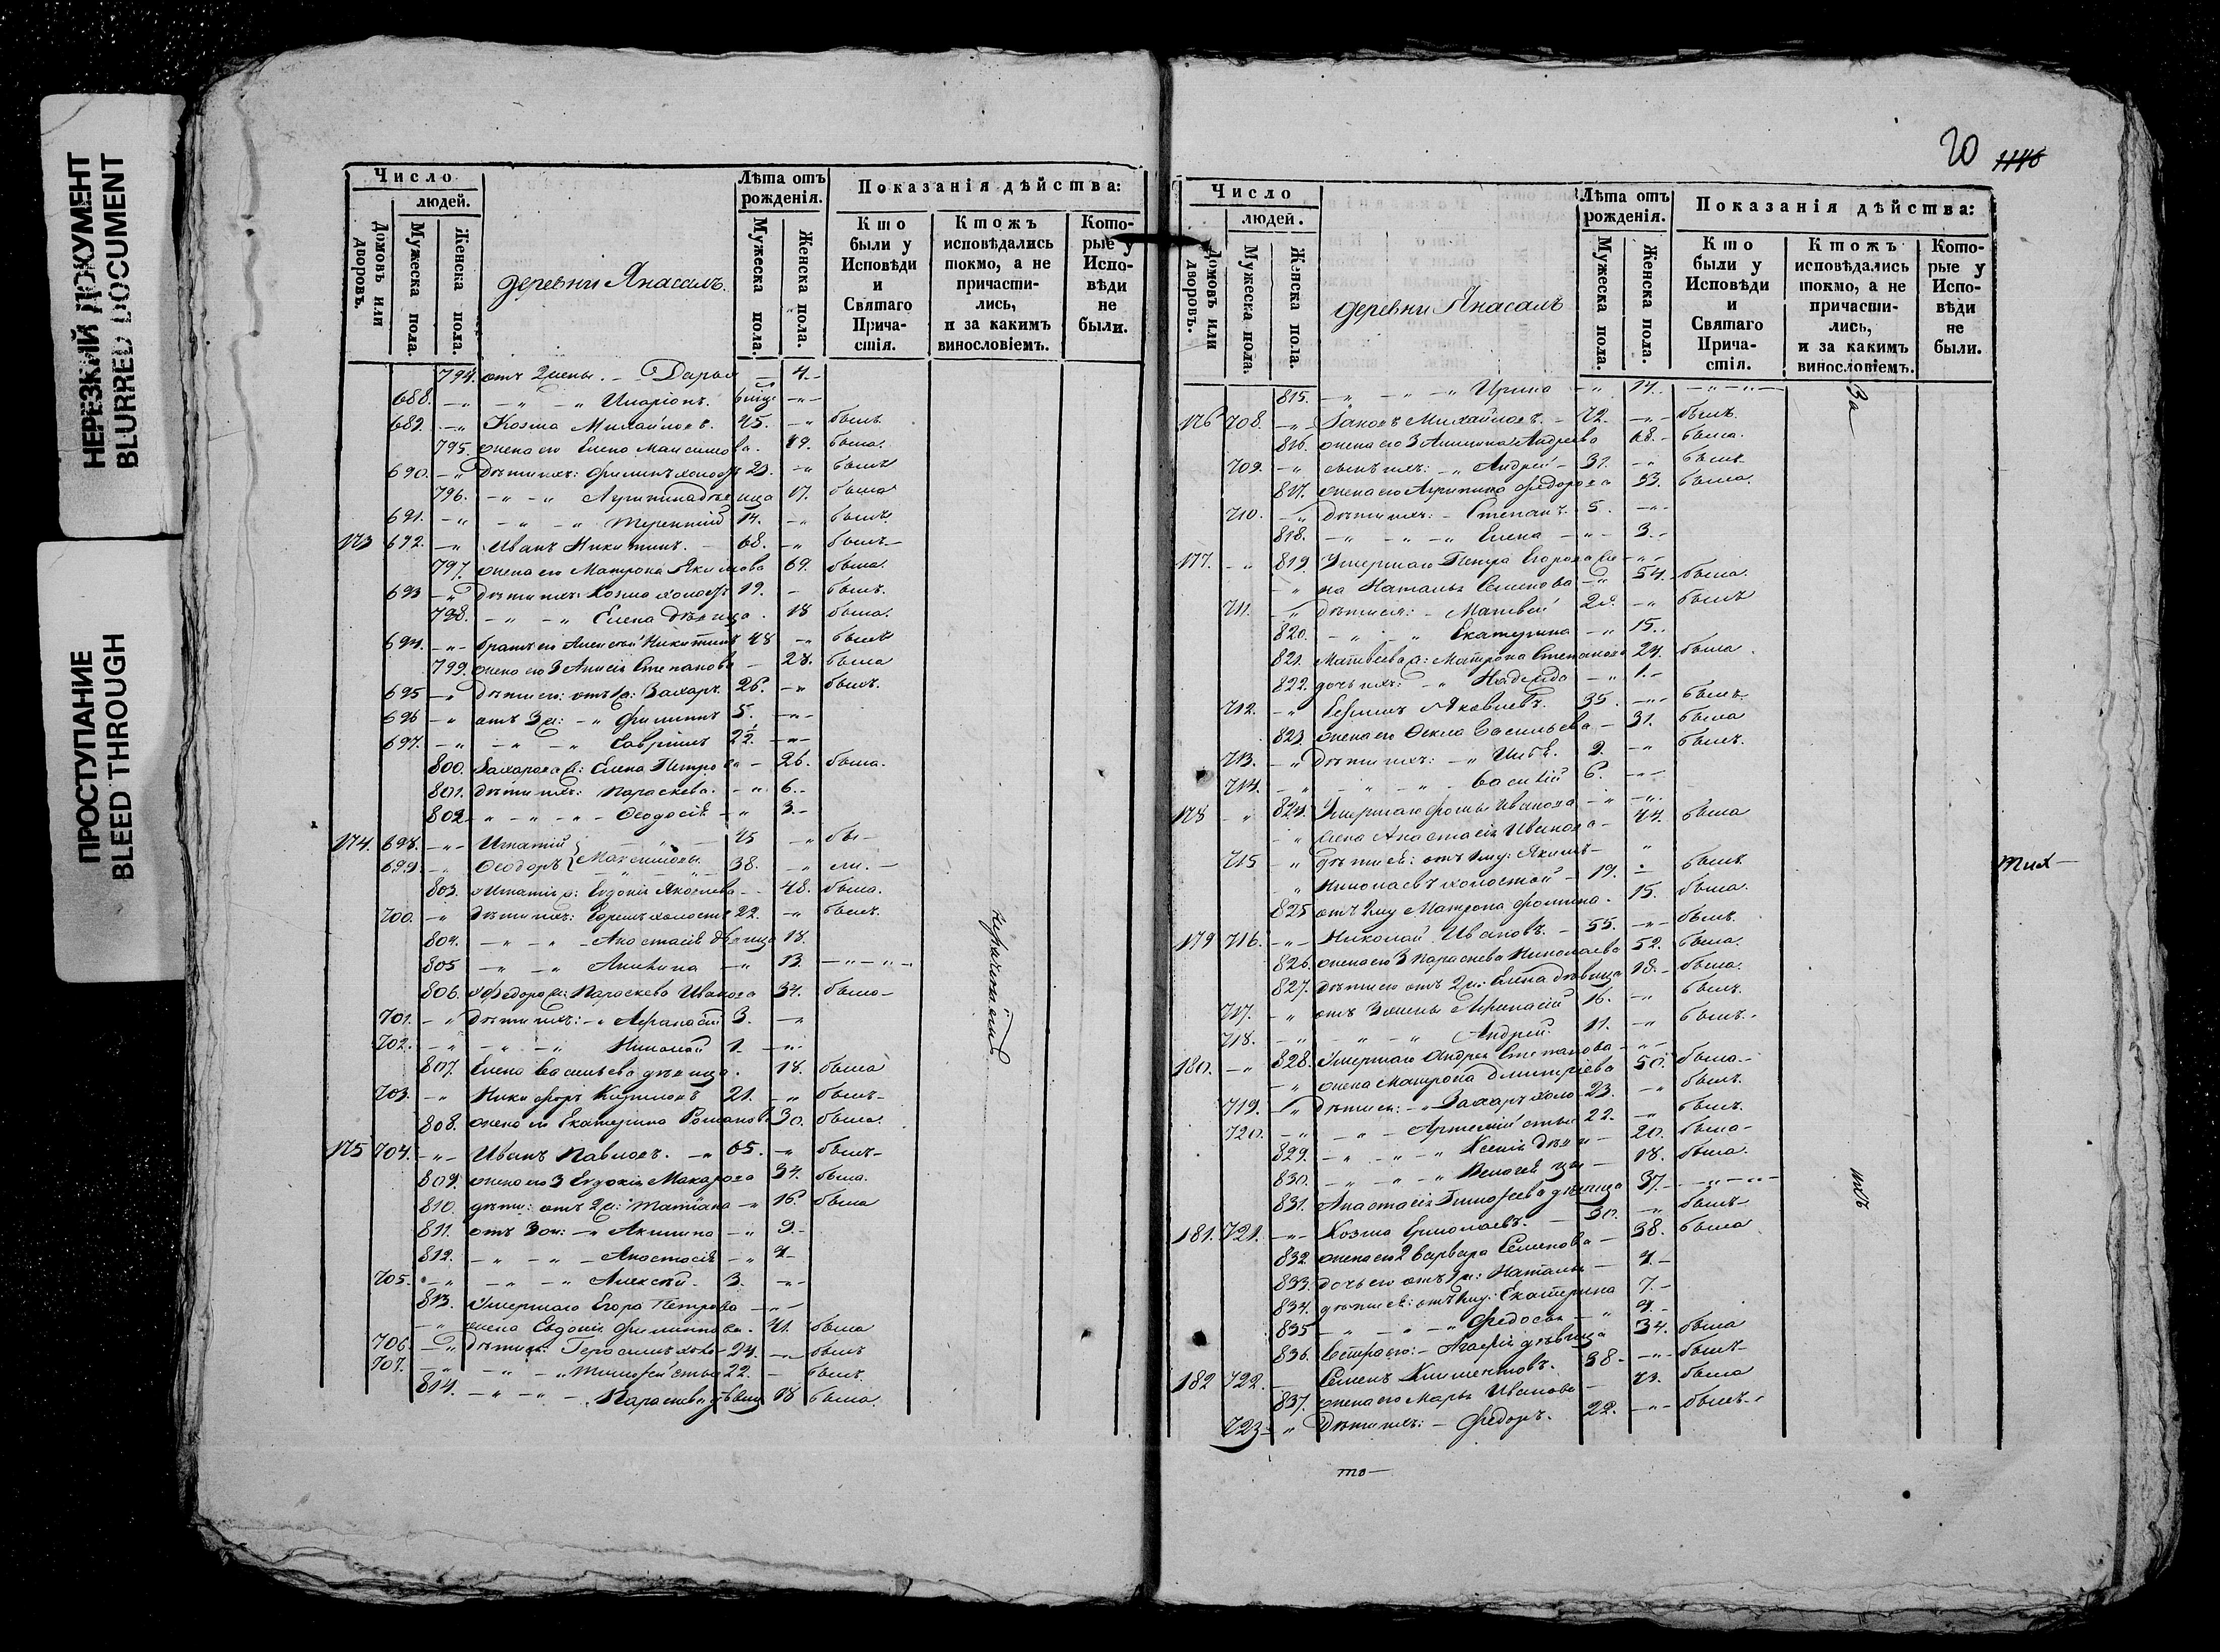 НЕРЕЗКИЙ ДОКУМЕНТ
BLURRED DOCUMENT
ПРОСТУПАНИЕ
BLEED THROUGH
Число
людей.
Домовъ или дворовъ.
Мужеска пола.
Женска пола.
деревни Янасалъ.
Лѣта отъ рожденія.
Мужеска пола.
Женска пола.
Показанія дѣйства:
Кто были у Исповѣди и Святаго Прича-стія.
Ктожъ исповѣдались токмо, а не причасти-лись, и за какимъ винословіемъ.
Кото-рые у Испо-вѣди не были.
794. отъ 2 жены. - Дарья - 4.
688. - " - " Иларіонъ.
689. - " Козма Михайловъ. 45. - " былъ
795. жена его Елена Максимова. 49. была.
690. - " дѣти ихъ: Филипъ холост 23. - " былъ
796. - " - " Агрипина дѣвица 17. была
691. - " - " Терентій 14. - " былъ
173 692. - " Иванъ Никитинъ. - 68. - " былъ
797. жена его Матрона Якимова 69. была.
693 - " дѣти ихъ: Козма холост 19. - былъ.
798. - " - " Елена дѣвица. 18 была.
694. - " - братъ его Алексѣй Никитинъ 48 - " былъ
799. жена его 3 Анисія Степанова - 28. была
695 - " дѣти его: отъ 1 ж: Захаръ. 26. - " былъ.
696 - " отъ 3 ж: - " Филиппъ 5. - " -
697. - " - " - " Гавріилъ 2½. - " -
800. Захарова ж: Елена Петрова - 26. была.
801. дѣти ихъ: Параскева. - " 6.
802 - " - " - Феодосія - " 3.
174. 698. - " - Игнатій 45 - " бы-
699. - " Феодоръ } Максимовы 38. - " ли.-
803. Игнатія ж: Евдокія Яковлева - 48. была.
700. - " дѣти ихъ: Ефремъ холост 22. - " былъ.
804. - " - " - Анастасія дѣвица 18.
805 - " - " Акилина - " 13. - " - " -
806. Федора ж: Параскева Иванова 34. была-
701. - " дѣти ихъ: - " Афанасій 3. - "
702. - " - " - " Николай 1. - "
807. Елена Васильева дѣвица. 18. была
703. - " Никифоръ Кириловъ 21. - " былъ-
808. жена его Екатерина Романова 30. была.
175 704. - " - Иванъ Павловъ. - " 65. - " былъ-
809. жена его 3 Евдокія Макарова 34. была.
810. дѣти: отъ 2 ж: Татіана - " 16. была
811. отъ 3 ж: - " Акилина - " 9.
812. - " - " - Анастасія - " 4-
705. - " - " - " Алексѣй. 3. - " -
813. Умершаго Егора Петрова - " -
- " жена Евдокія Филиппова. 41. была
706. - " дѣти ея: Герасимъ холо- 24. - " былъ
707. - " - " - " Тимофей стые 22. - былъ.
814. - " - " - Параскева дѣвица 18 была.
20 1146
Число
людей.
Домовъ или дворовъ.
Мужеска пола.
Женска пола.
деревни Янасалъ
Лѣта отъ рожденія.
Мужеска пола.
Женска пола.
Показанія дѣйства:
Кто были у Исповѣди и Святаго Прича-стія.
Ктожъ исповѣдались токмо, а не причасти-лись, и за какимъ винословіемъ.
Кото-рые у Испо-вѣди не были.
За
815. - " - " - " Ирина - " 14. - " - " -
176 708. - " Яковъ Михайловъ. - 72. - " - былъ.
816. жена его 3 Акилина Андреева 68. - была.
709. - " сынъ ихъ: - " Андрей - 37. - " былъ
817. жена его Агрипина Федорова 33. была.
710. - " дѣти ихъ: - Степанъ. 5. - " -
818. - " - " - " Елена - " - 3.
177. - " 819. Умершаго Петра Егорова же- - " -
- " на Наталья Семенова - " 54. была.
711. - " дѣти ея: - Матвей 28. - " былъ
820. - " - " Екатерина - " 15.
821. Матвеева ж: Матрона Степанова 24. была.
822. дочь ихъ: - " Надежда - " 1.
712. - " Ефимъ Яковлевъ. 35. - " былъ
823. жена его Фекла Васильева - 31. была
713. - " дѣти ихъ: - " Глѣбъ. 9. - " былъ.
714. - " - " - " Василій 6. - " -
178 - " 824. Умершаго Фомы Иванова - " - " -
- " жена Анастасія Иванова - 44. была
715 - " дѣти ея: отъ 1 му: Якимъ - "
- " Николаевъ холостой - 19. - былъ.
825 отъ 2 му Матрона Фомина. 15. была.
179 716. - " - Николай Ивановъ. - 55. - " - былъ.
826. жена его 3 Параскева Николаева 52. была.
827. дѣти его отъ 2 ж: Елена дѣвица 18. - была.
717. - " отъ 3 жены Афанасій 16. - " былъ.
718. - " - " - " Андрей. 11. - " былъ.
180. - " 828. Умершаго Андрея Степанова - " -
- " жена Матрона Дмитріева 50. была-
719. - " дѣти ея: - " Захаръ холо- 23. - " былъ.
720. - " - " - Артемій стые 22. - " былъ.
829. - " - " - " Ксенія дѣви- 20. была-
830. - " - " - " цы - 18. была.
831. Анастасія Тимофеева дѣвица 37. - " - " -
181. 721. - " - Козма Ермолаевъ. - 30. - " былъ-
832 жена его 2 Варвара Семенова - 38. была
833. дочь его отъ 1 ж: Наталья - 4.
834. дѣти ея: отъ 1 му: Екатерина 7.-
835 - " - " - " Федосья - " 4.-
836. Сестра его: - Агафія дѣвица 34. была
182 722. - Семенъ Климентовъ. 38- - " - былъ-
837. жена его Марья Иванова - 43. была
723 - " дѣти ихъ: - Федоръ. 22. - " - былъ.
то-